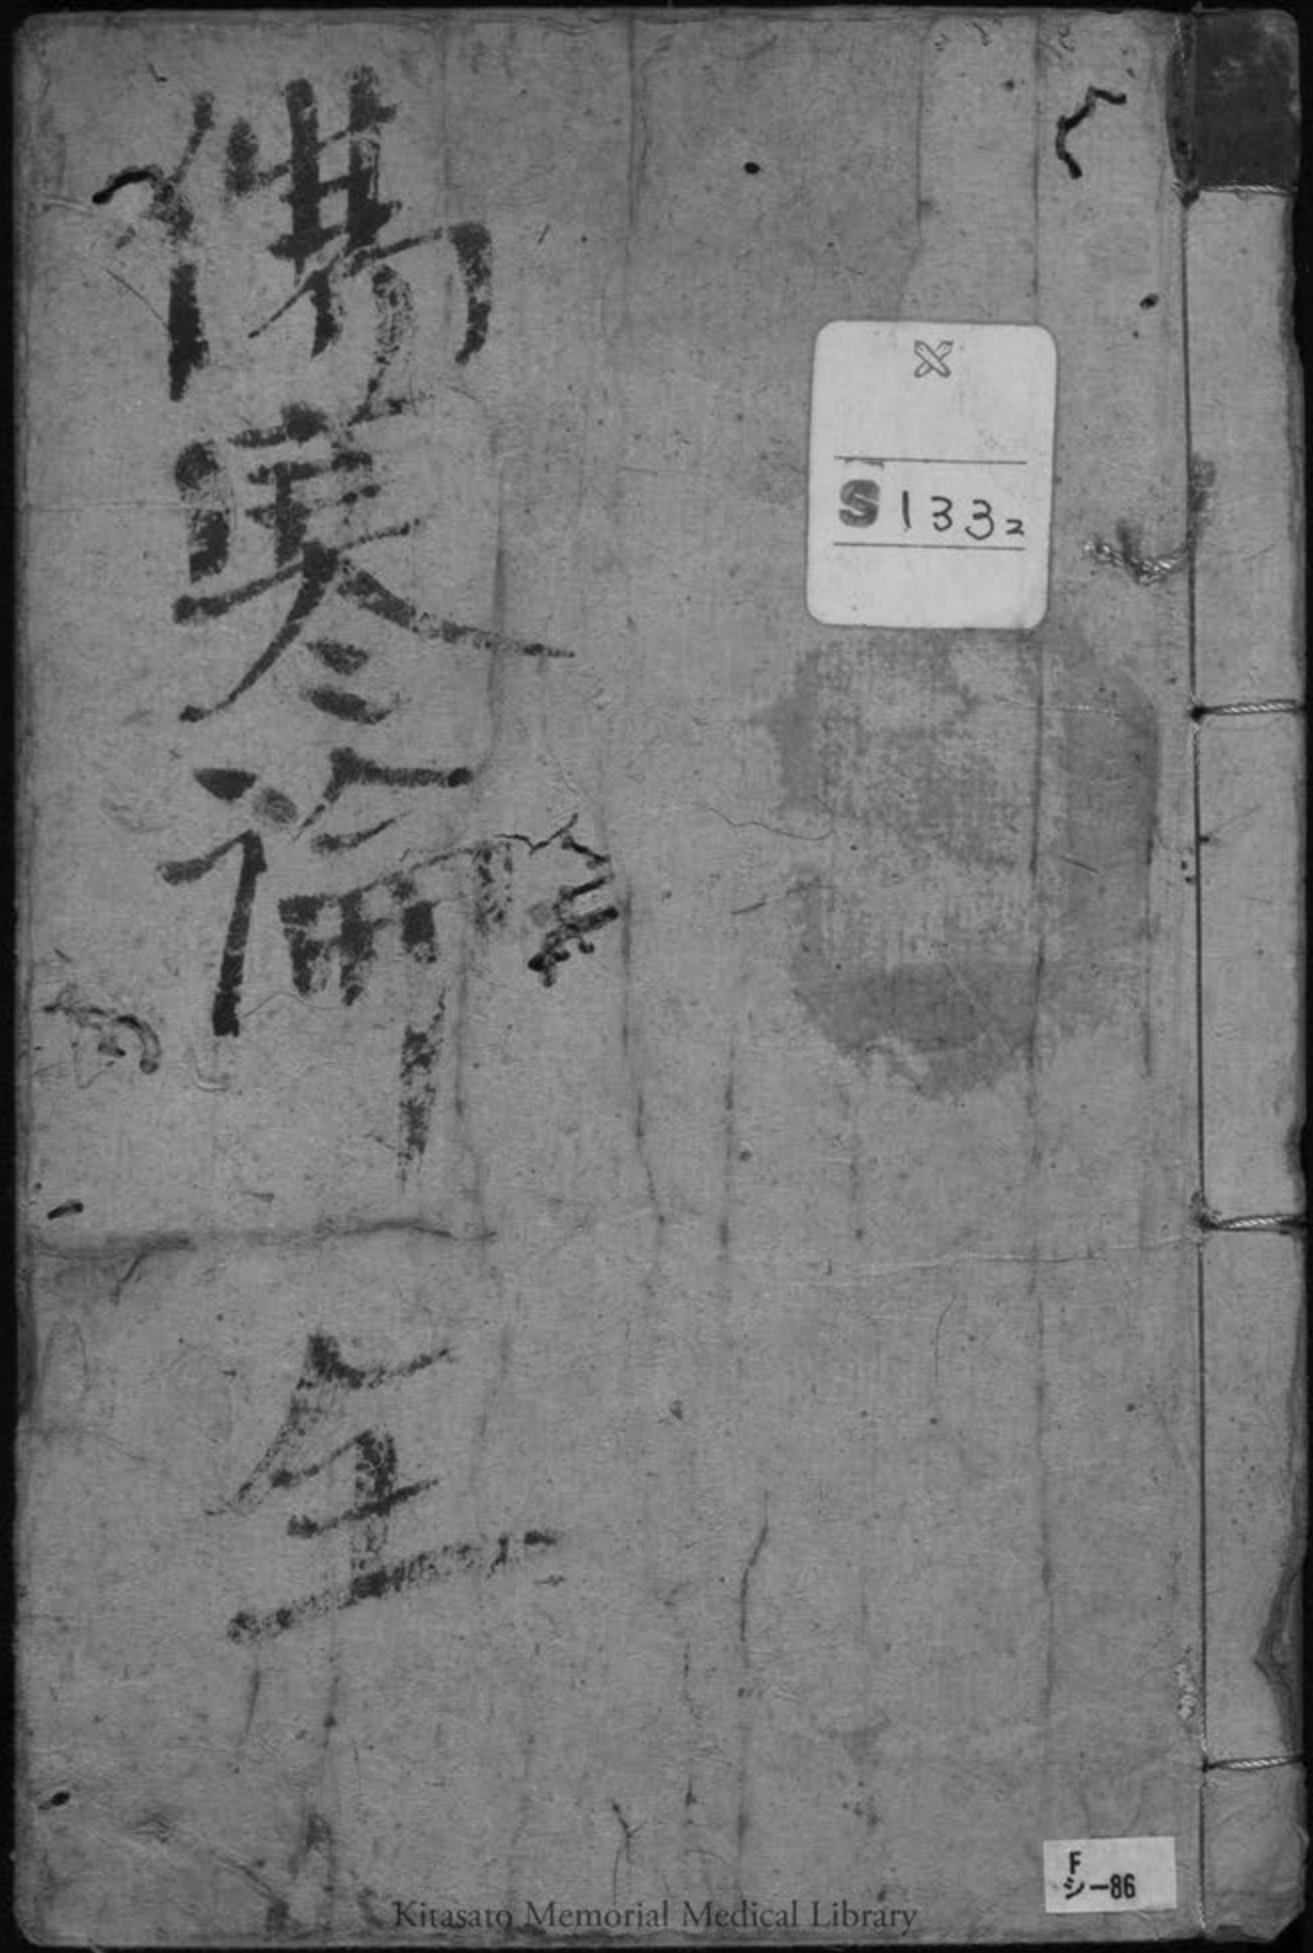 傷寒論 全
S 1332
F
シ-86
Kitasato Memorial Medical Library